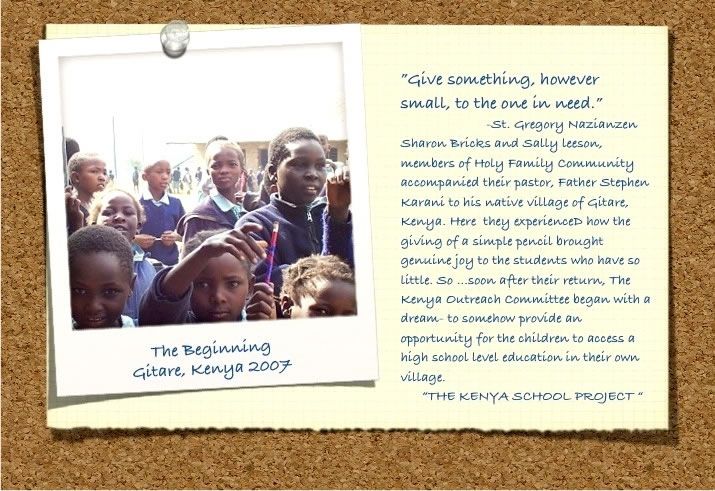 "Give something, however
small, to the one in need."
-St. Gregory Nazianzen
Sharon Bricks and Sally leeson,
members of Holy Family Community
accompanied their pastor, Father Stephen
Karani to his native village of Gitare,
Kenya. Here they experienceD how the
giving of a simple pencil brought
genuine joy to the students who have so
little. So ...soon after their return, The
Kenya Outreach Committee began with a
dream- to somehow provide an
opportunity for the children to access a
high school level education in their own
village.
"THE KENYA SCHOOL PROJECT "
The Beginning
Gitare, Kenya 2007